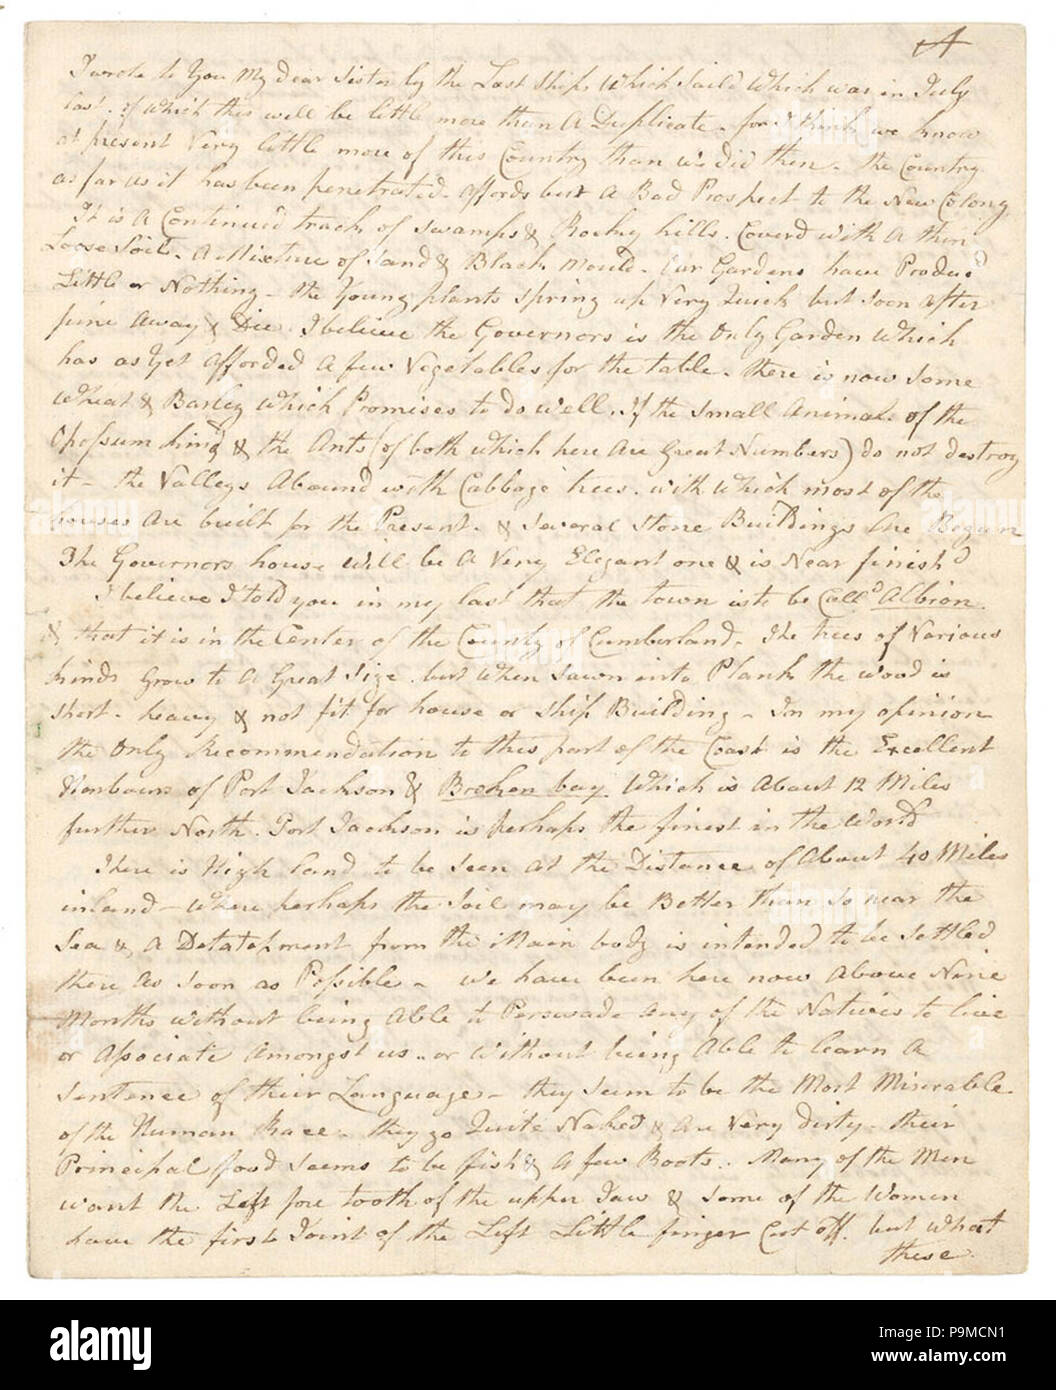 A
I wrote to You My Dear Sister by the Last Ships Which Sail'd Which was in July
last. of Which this will be little more than A Duplicate. for I think we know
at present Very little more of this Country than we did then. the Country
as far as it has been penetrated. affords but A Bad Prospect to the New Colony
It is A Continued track of Swamps & Rocky hills. Coverd with A thin
Loose Soil. A Mixture of Sand & Black Mould. Our Gardens have Produc'd
Little or Nothing - the Young plants spring up Very Quick but soon after
pine Away & Die. I believe the Governors is the Only Garden Which
has as Yet afforded A few Vegetables for the table. there is now some
Wheat & Barley Which Promises to do well. if the Small Animals of the
Opossum kind & the Ants (of both which here Are Great Numbers) do not destroy
it - the Valleys Abound with Cabbage trees. with Which most of the
houses Are built for the Present. & several stone Buildings Are Begun
The Governors house Will be A Very Elegant one & is Near finish'd
I believe I told you in my last that the town is to be Call'd Albion.
& that it is in the Center of the County of Cumberland - The trees of Various
kinds Grow to A Great Size. but When Sawn into Plank the wood is
Short. heavy & not fit for house or Ship Building - In my opinion
the Only Recommendation to this part of the Coast is the Excellent
Harbours of Port Jackson & Broken bay. Which is About 12 Miles
further North. Port Jackson is perhaps the finest in the World
There is High land to be Seen At the Distance of About 40 Miles
inland - Where perhaps the Soil may be Better than So near the
Sea & A Detatchment from the Main body is intended to be Settled
there As Soon as Possible - We have been here now Above Nine
Months without being Able to Perswade Any of the Natives to live
or Associate Amongst us. or Without being Able to learn A
Sentence of their Language - they Seem to be the Most Miserable
of the Human Race. they go Quite Naked & Are Very dirty. their
Principal food Seems to be fish & A few Roots. Many of the Men
want the Left fore tooth of the upper Jaw & Some of the Women
have the first Joint of the Left Little finger Cut off. but What
these
alamy
a
alamy
Image ID: P9MCN1
www.alamy.com